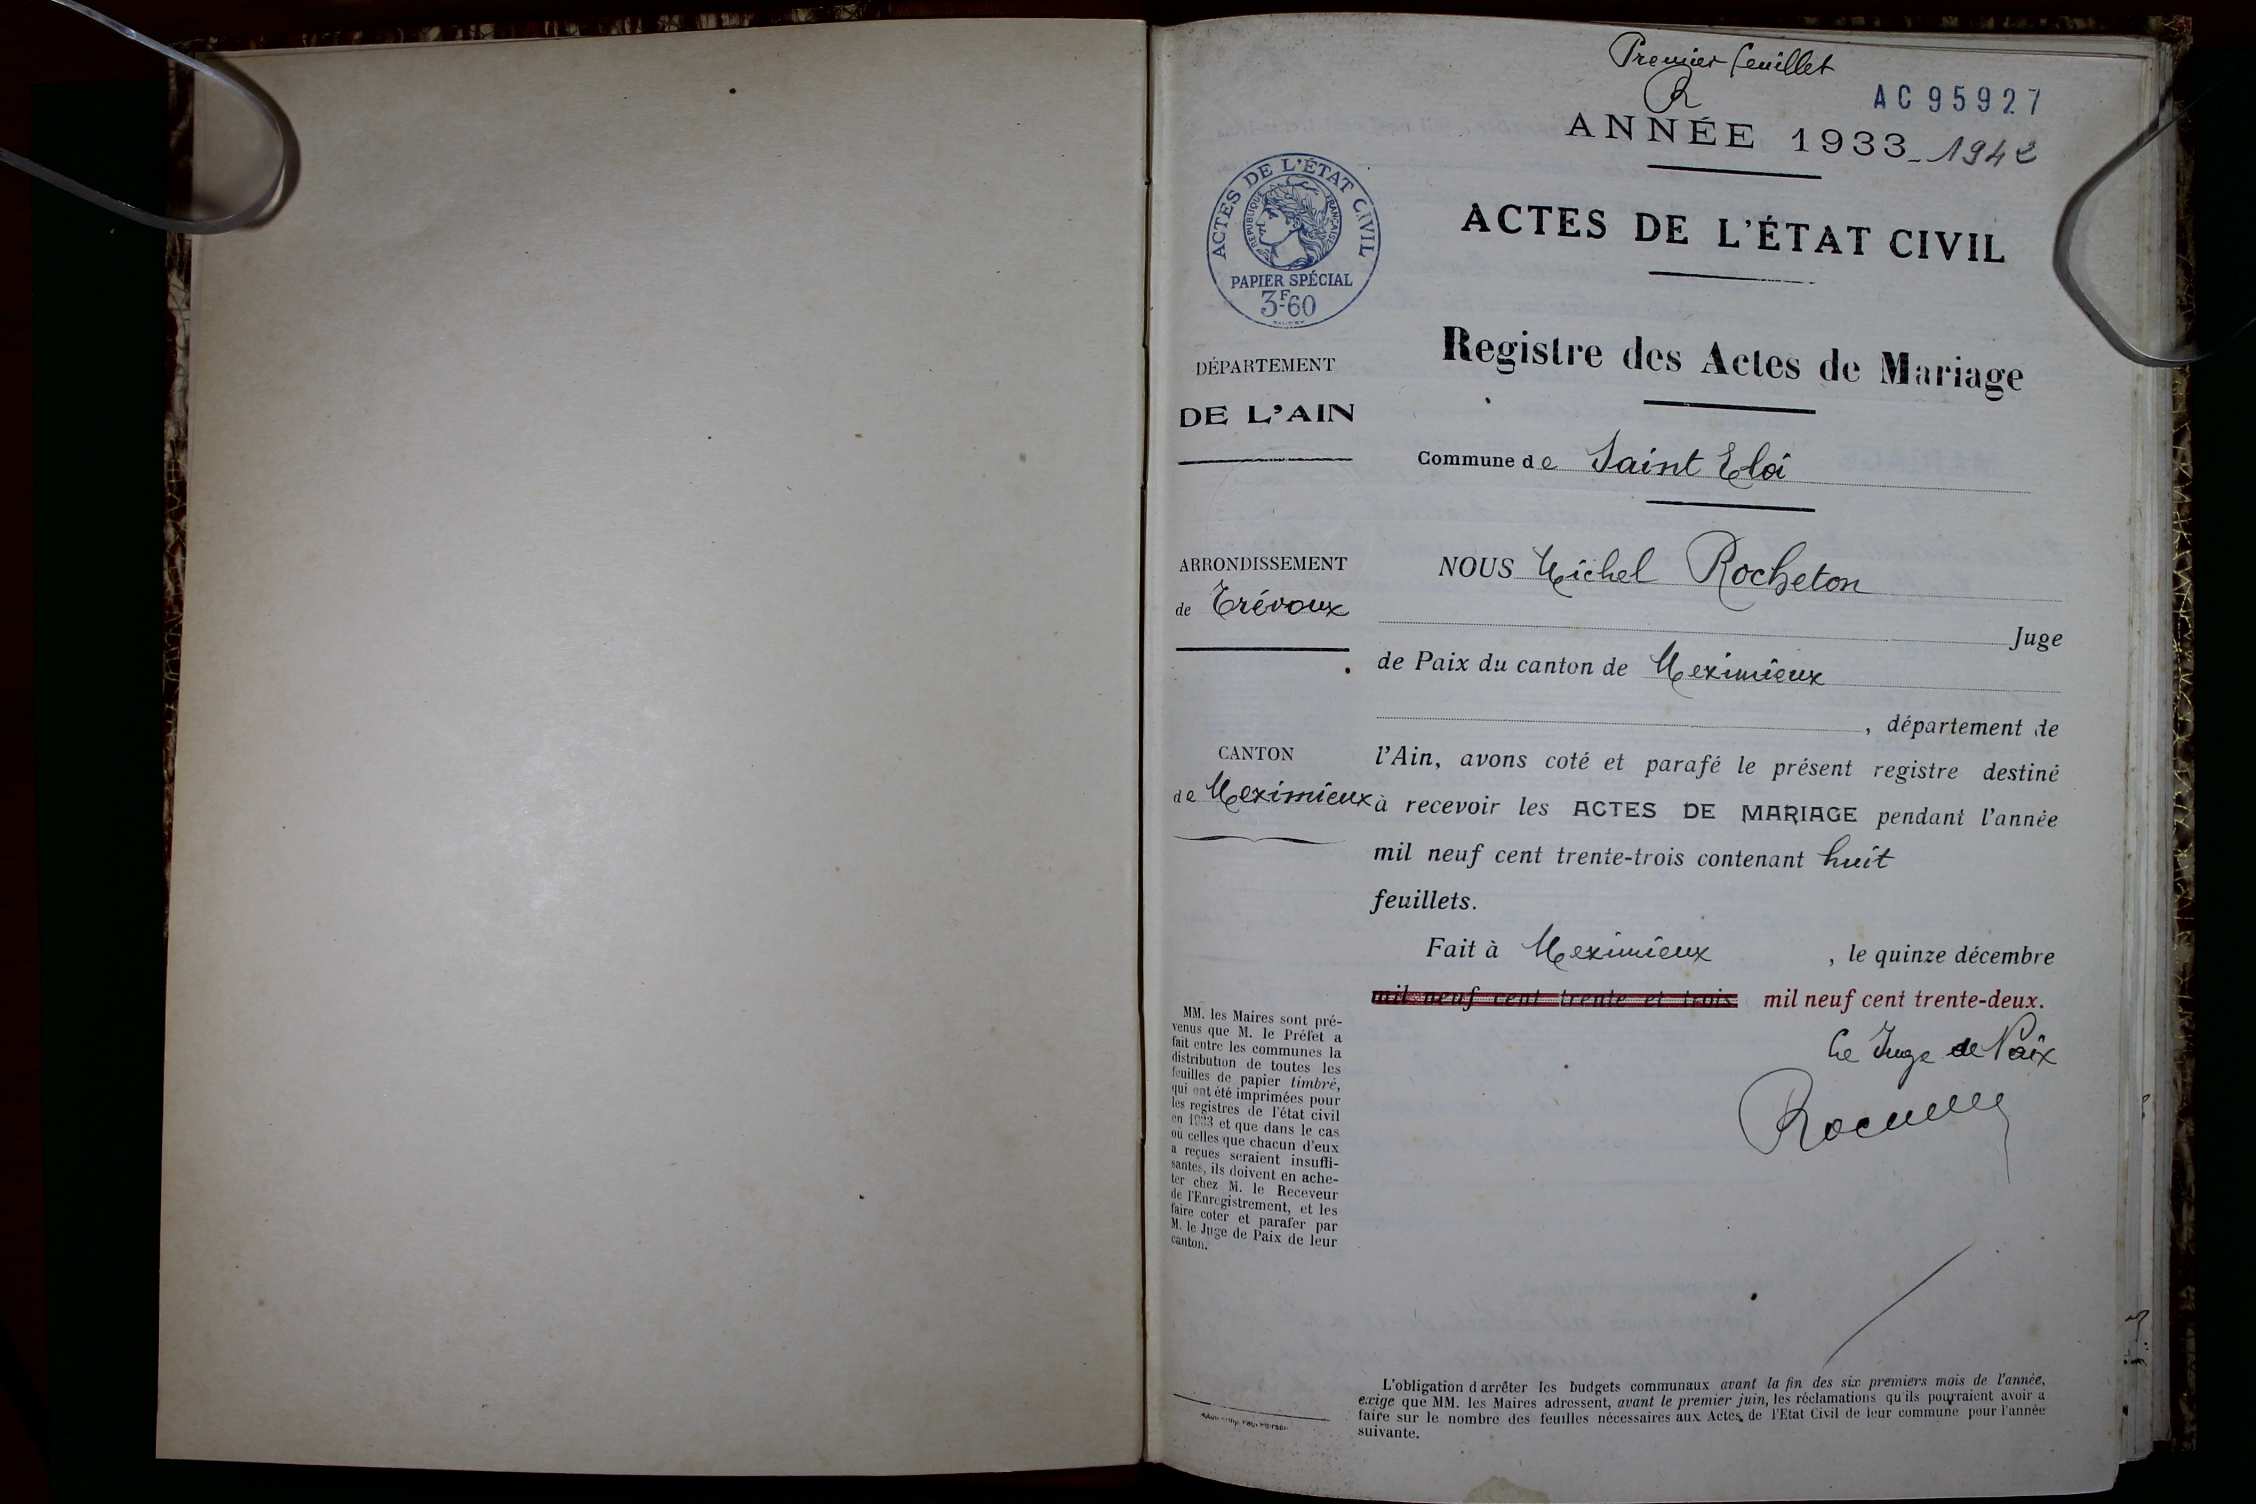 Premier feuillet
R
AC95927
ANNÉE 1933_1942
ACTES DE L'ÉTAT CIVIL
RÉPUBLIQUE FRANÇAISE
PAPIER SPÉCIAL
3F60
ACTES DE L'ÉTAT CIVIL
Registre des Actes de Mariage
Commune de Saint Eloi
DÉPARTEMENT
DE L'AIN
ARRONDISSEMENT
de Trévoux
CANTON
de Meximieux
NOUS Michel Rocheton
Juge
de Paix du canton de Meximieux
, département de
l'Ain, avons coté et parafé le présent registre destiné
à recevoir les ACTES DE MARIAGE pendant l'année
mil neuf cent trente-trois contenant huit
feuillets.
Fait à Meximieux , le quinze décembre
mil neuf cent trente et trois mil neuf cent trente-deux.
Le Juge de Paix
MM. les Maires sont pré-
venus que M. le Préfet a
fait entre les communes la
distribution de toutes les
feuilles de papier timbré,
qui ont été imprimées pour
les registres de l'état civil
en 1933 et que dans le cas
ou celles que chacun d'eux
a reçues seraient insuffi-
santes, ils doivent en ache-
ter chez M. le Receveur
de l'Enregistrement, et les
faire coter et parafer par
M. le Juge de Paix de leur
canton.
L'obligation d'arrêter les budgets communaux avant la fin des six premiers mois de l'année,
exige que MM. les Maires adressent, avant le premier juin, les réclamations qu'ils pourraient avoir a
faire sur le nombre des feuilles nécessaires aux Actes de l'Etat Civil de leur commune pour l'année
suivante.